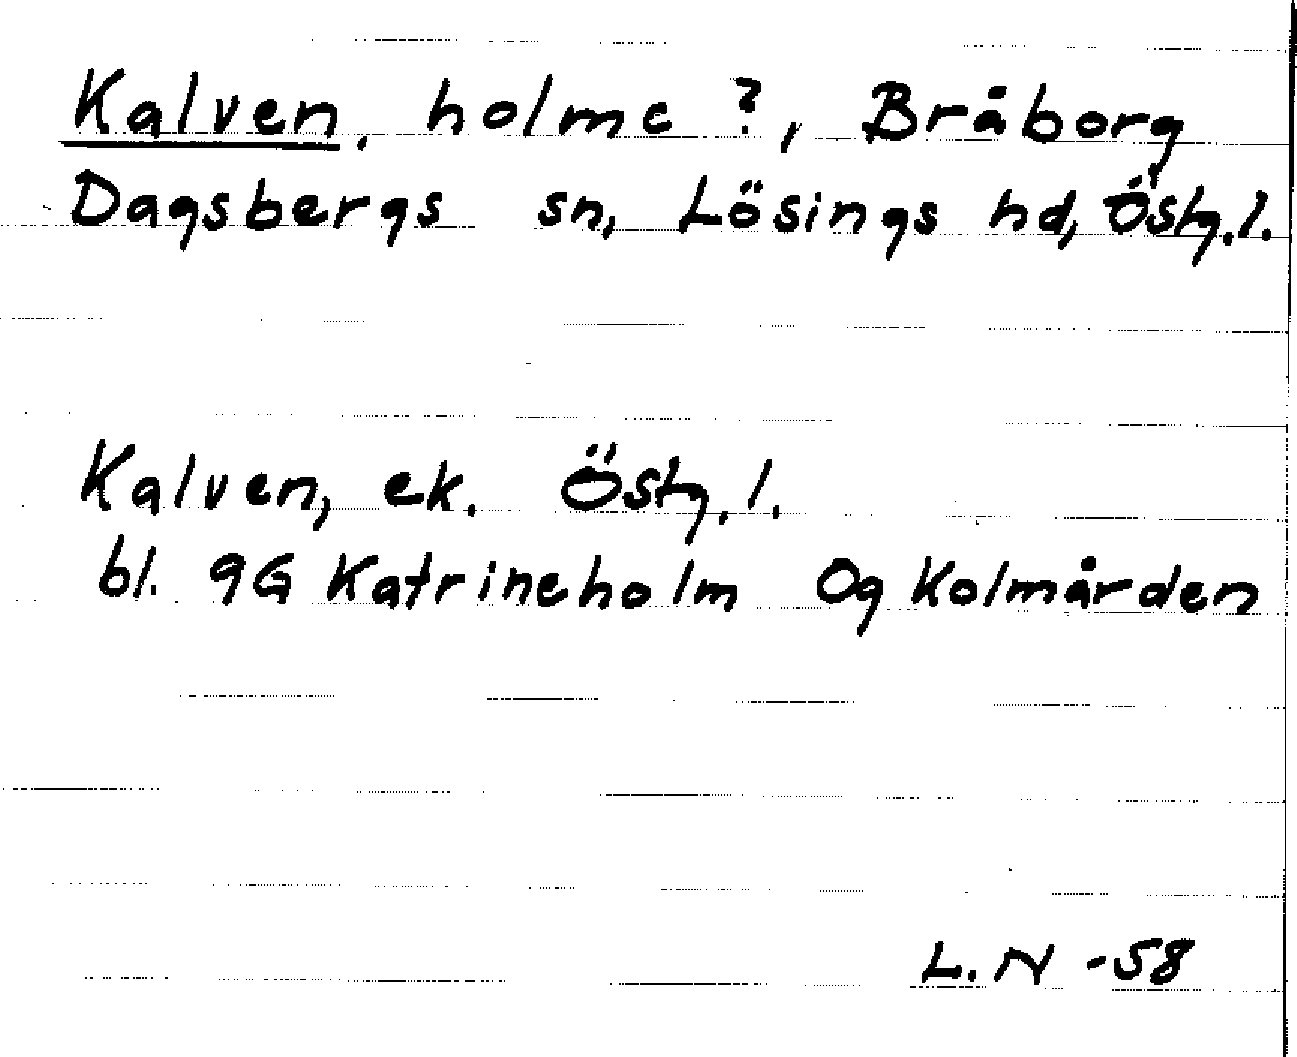 Kalven, holme ?, Bråborg
Dagsbergs sn, Lösings hd, Östg.l.
Kalven, ek. Östg.l.
bl. 9G Katrineholm Og Kolmården
L.N -58